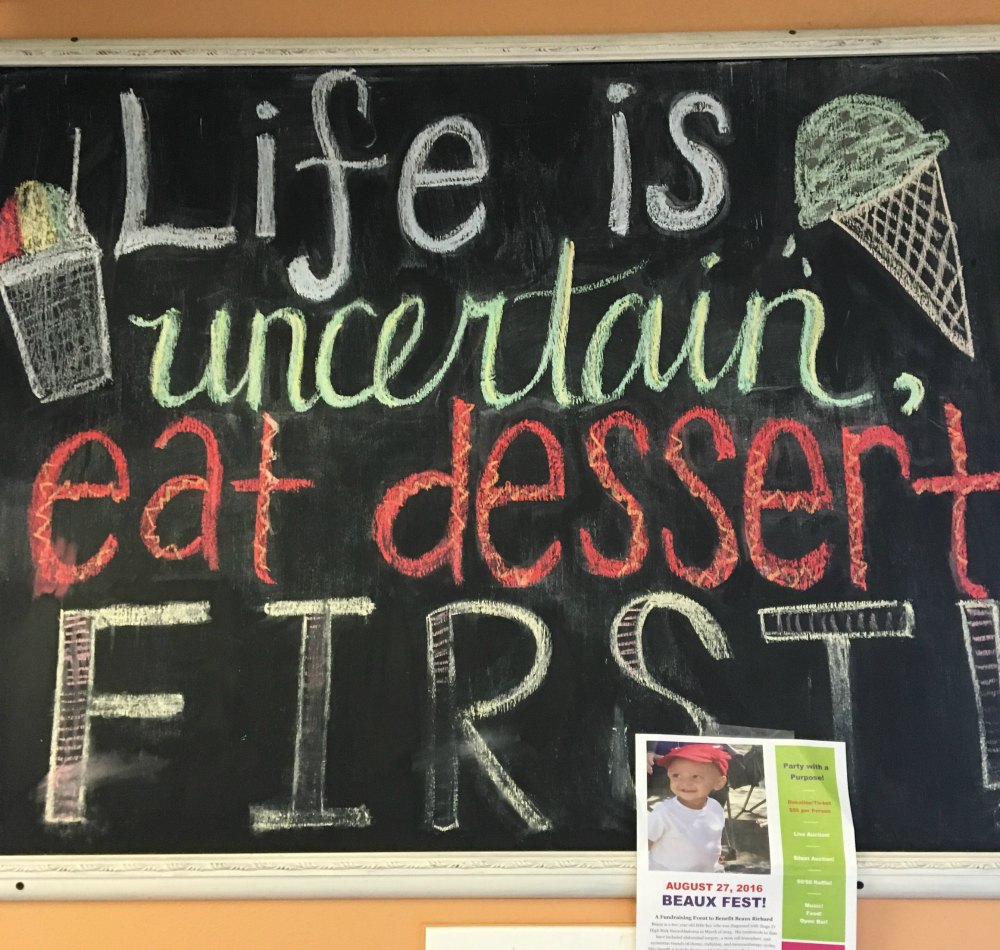 Life is
uncertain,
eat dessert
FIRST!
Party with a
Purpose!
Donation/Ticket
$50 per Person
Live Auction!
Silent Auction!
50/50 Raffle!
Music!
Food!
Open Bar!
AUGUST 27, 2016
BEAUX FEST!
A Fundraising Event to Benefit Beaux Richard